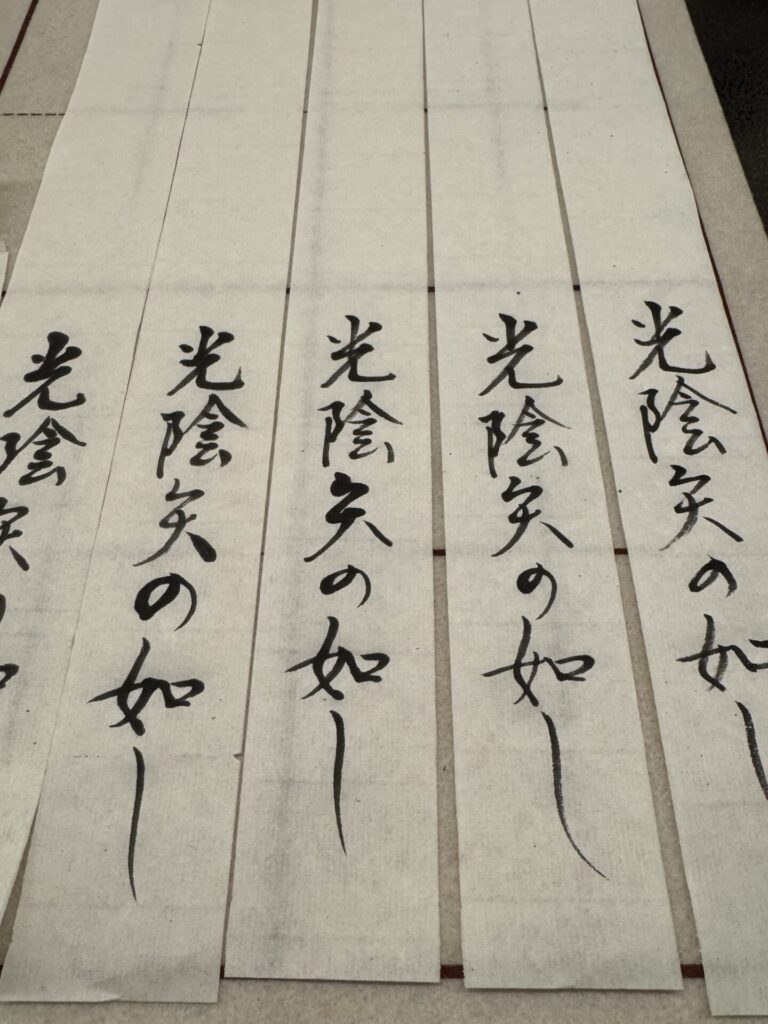 光陰矢の如し
光陰矢の如し
光陰矢の如し
光陰矢の如し
光陰矢